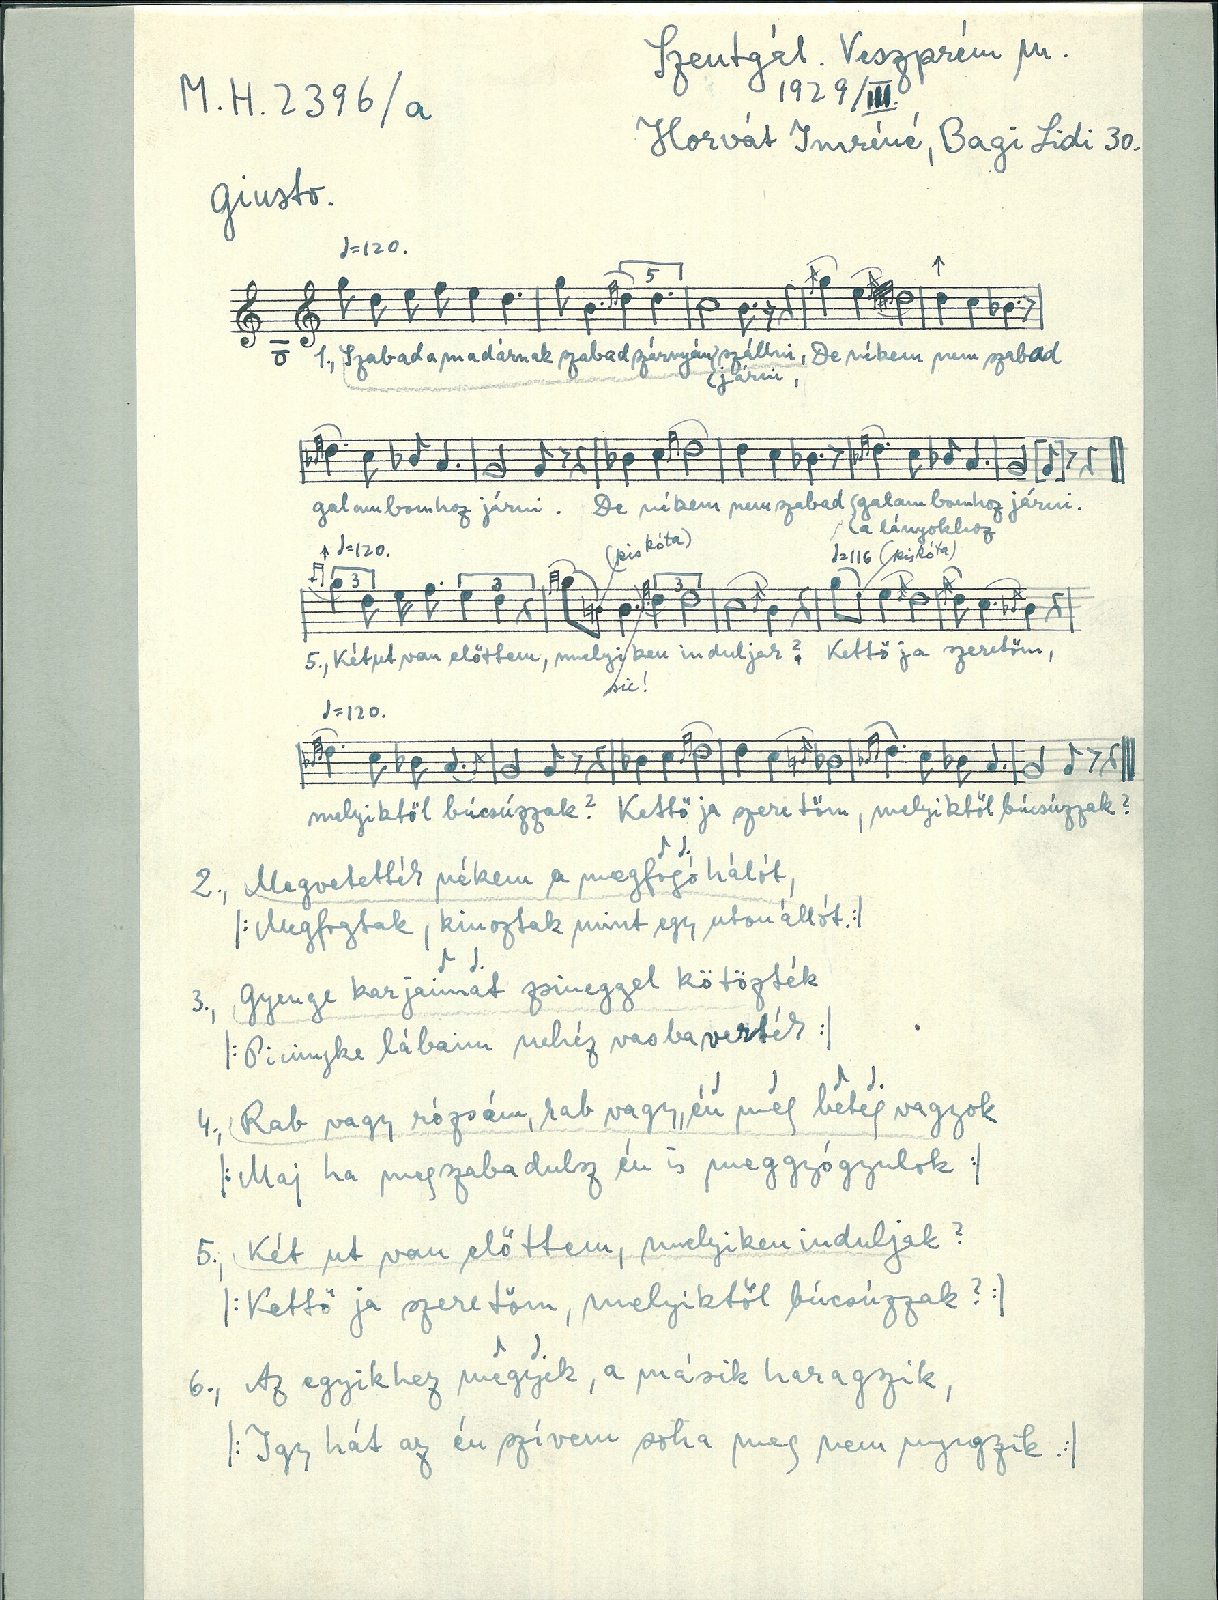 Szentgál. Veszprém m.
M.H. 2396/a
1929/III.
Horvát Imréné, Bagi Lidi 30.
Giusto.
♩=120.
5
1., Szabad a madárnak szabad szárnyán szállni, De nékem nem szabad
járni,
galambomhoz járni. De nékem nem szabad galambomhoz járni.
a lányokhoz
♩=120. (kiskóta) ♩=116 (kiskóta)
3 3 3
5., Két ut van előttem, melyiken induljak? Kettő ja szeretőm,
sic!
♩=120.
melyiktől búcsúzzak? Kettő ja szeretőm, melyiktől búcsúzzak?
2., Megvetették nékem a megfogó hálót,
|: Megfogtak, kinoztak mint egy utonállót. :|
3., Gyenge karjaimat zsineggel kötözték
|: Picinyke lábaim nehéz vasba verték :|
4., Rab vagy rózsám, rab vagy, én még beteg vagyok
|: Maj ha megszabadulsz én is meggyógyulok :|
5., Két ut van előttem, melyiken induljak?
|: Kettő ja szeretőm, melyiktől búcsúzzak? :|
6., Az egyikhez mégyek, a másik haragszik,
|: Igy hát az én szívem soha meg nem nyugszik. :|